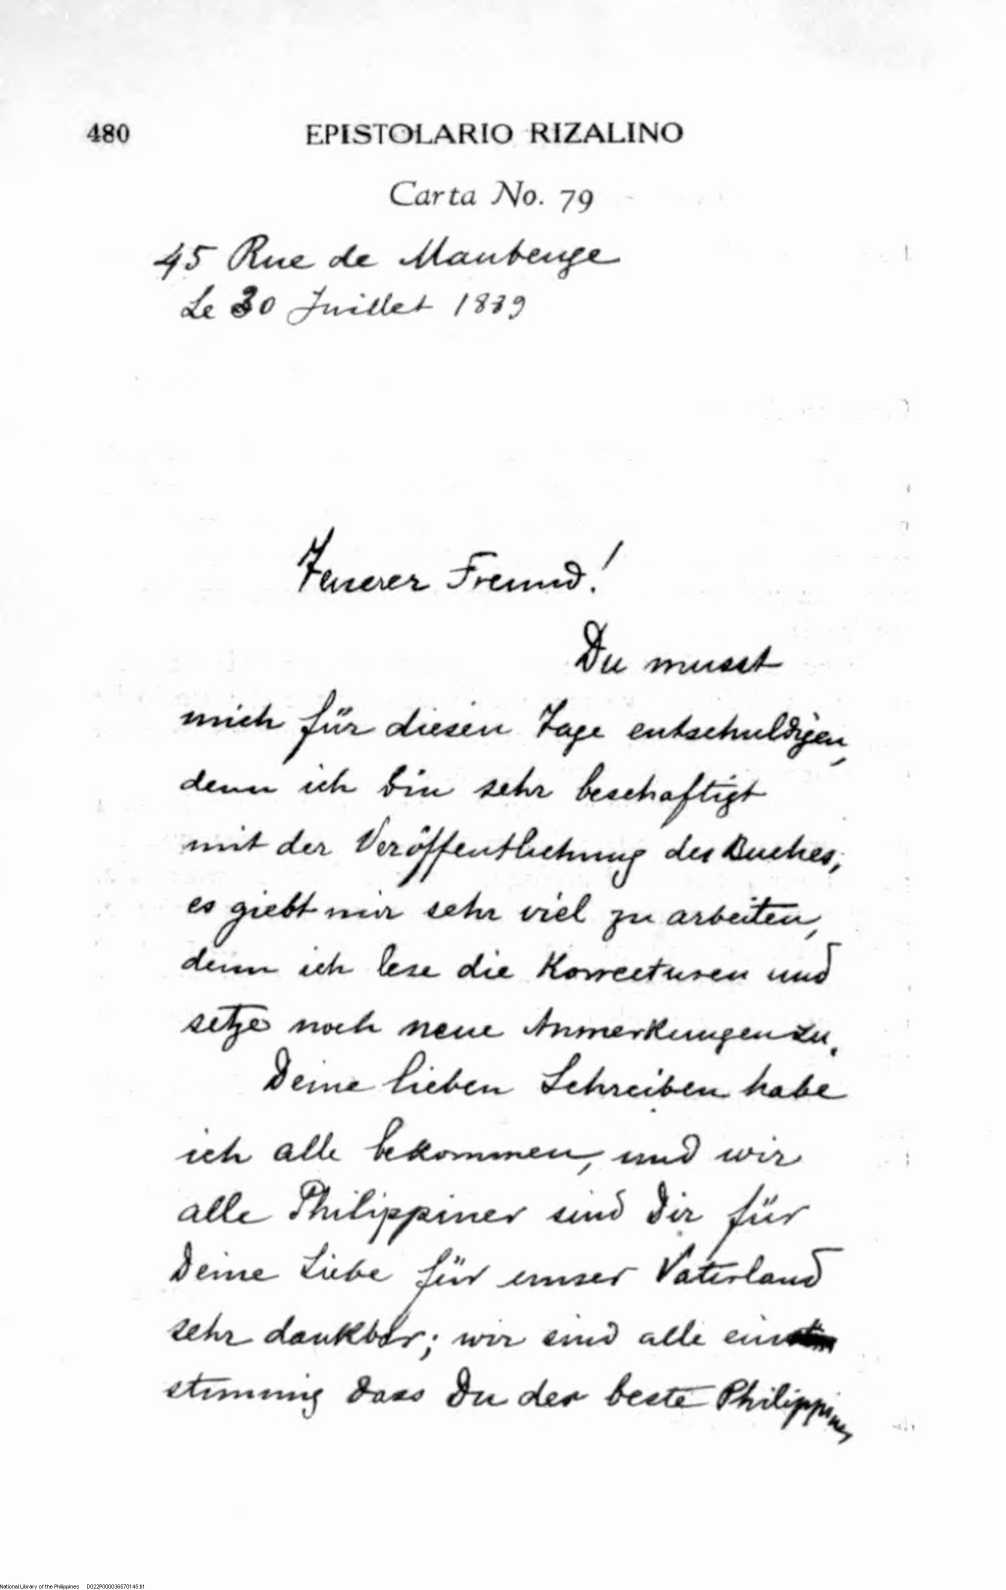 480 EPISTOLARIO RIZALINO
Carta No. 79
45 Rue de Maubeuge
Le 30 Juillet 1889
Teuerer Freund!
Du musst
mich für diesen Tage entschuldigen,
denn ich bin sehr beschaftigt
mit der Veröffentlichung des Buches;
es giebt mir sehr viel zu arbeiten,
denn ich lese die Korrecturen und
setze noch neue Anmerkungen zu.
Deine lieben Schreiben habe
ich alle bekommen, und wir
alle Philippiner sind Dir für
Deine Liebe für unser Vaterland
sehr dankbar; wir sind alle ein
stimmig dass Du der beste Philippiner
National Library of the Philippines